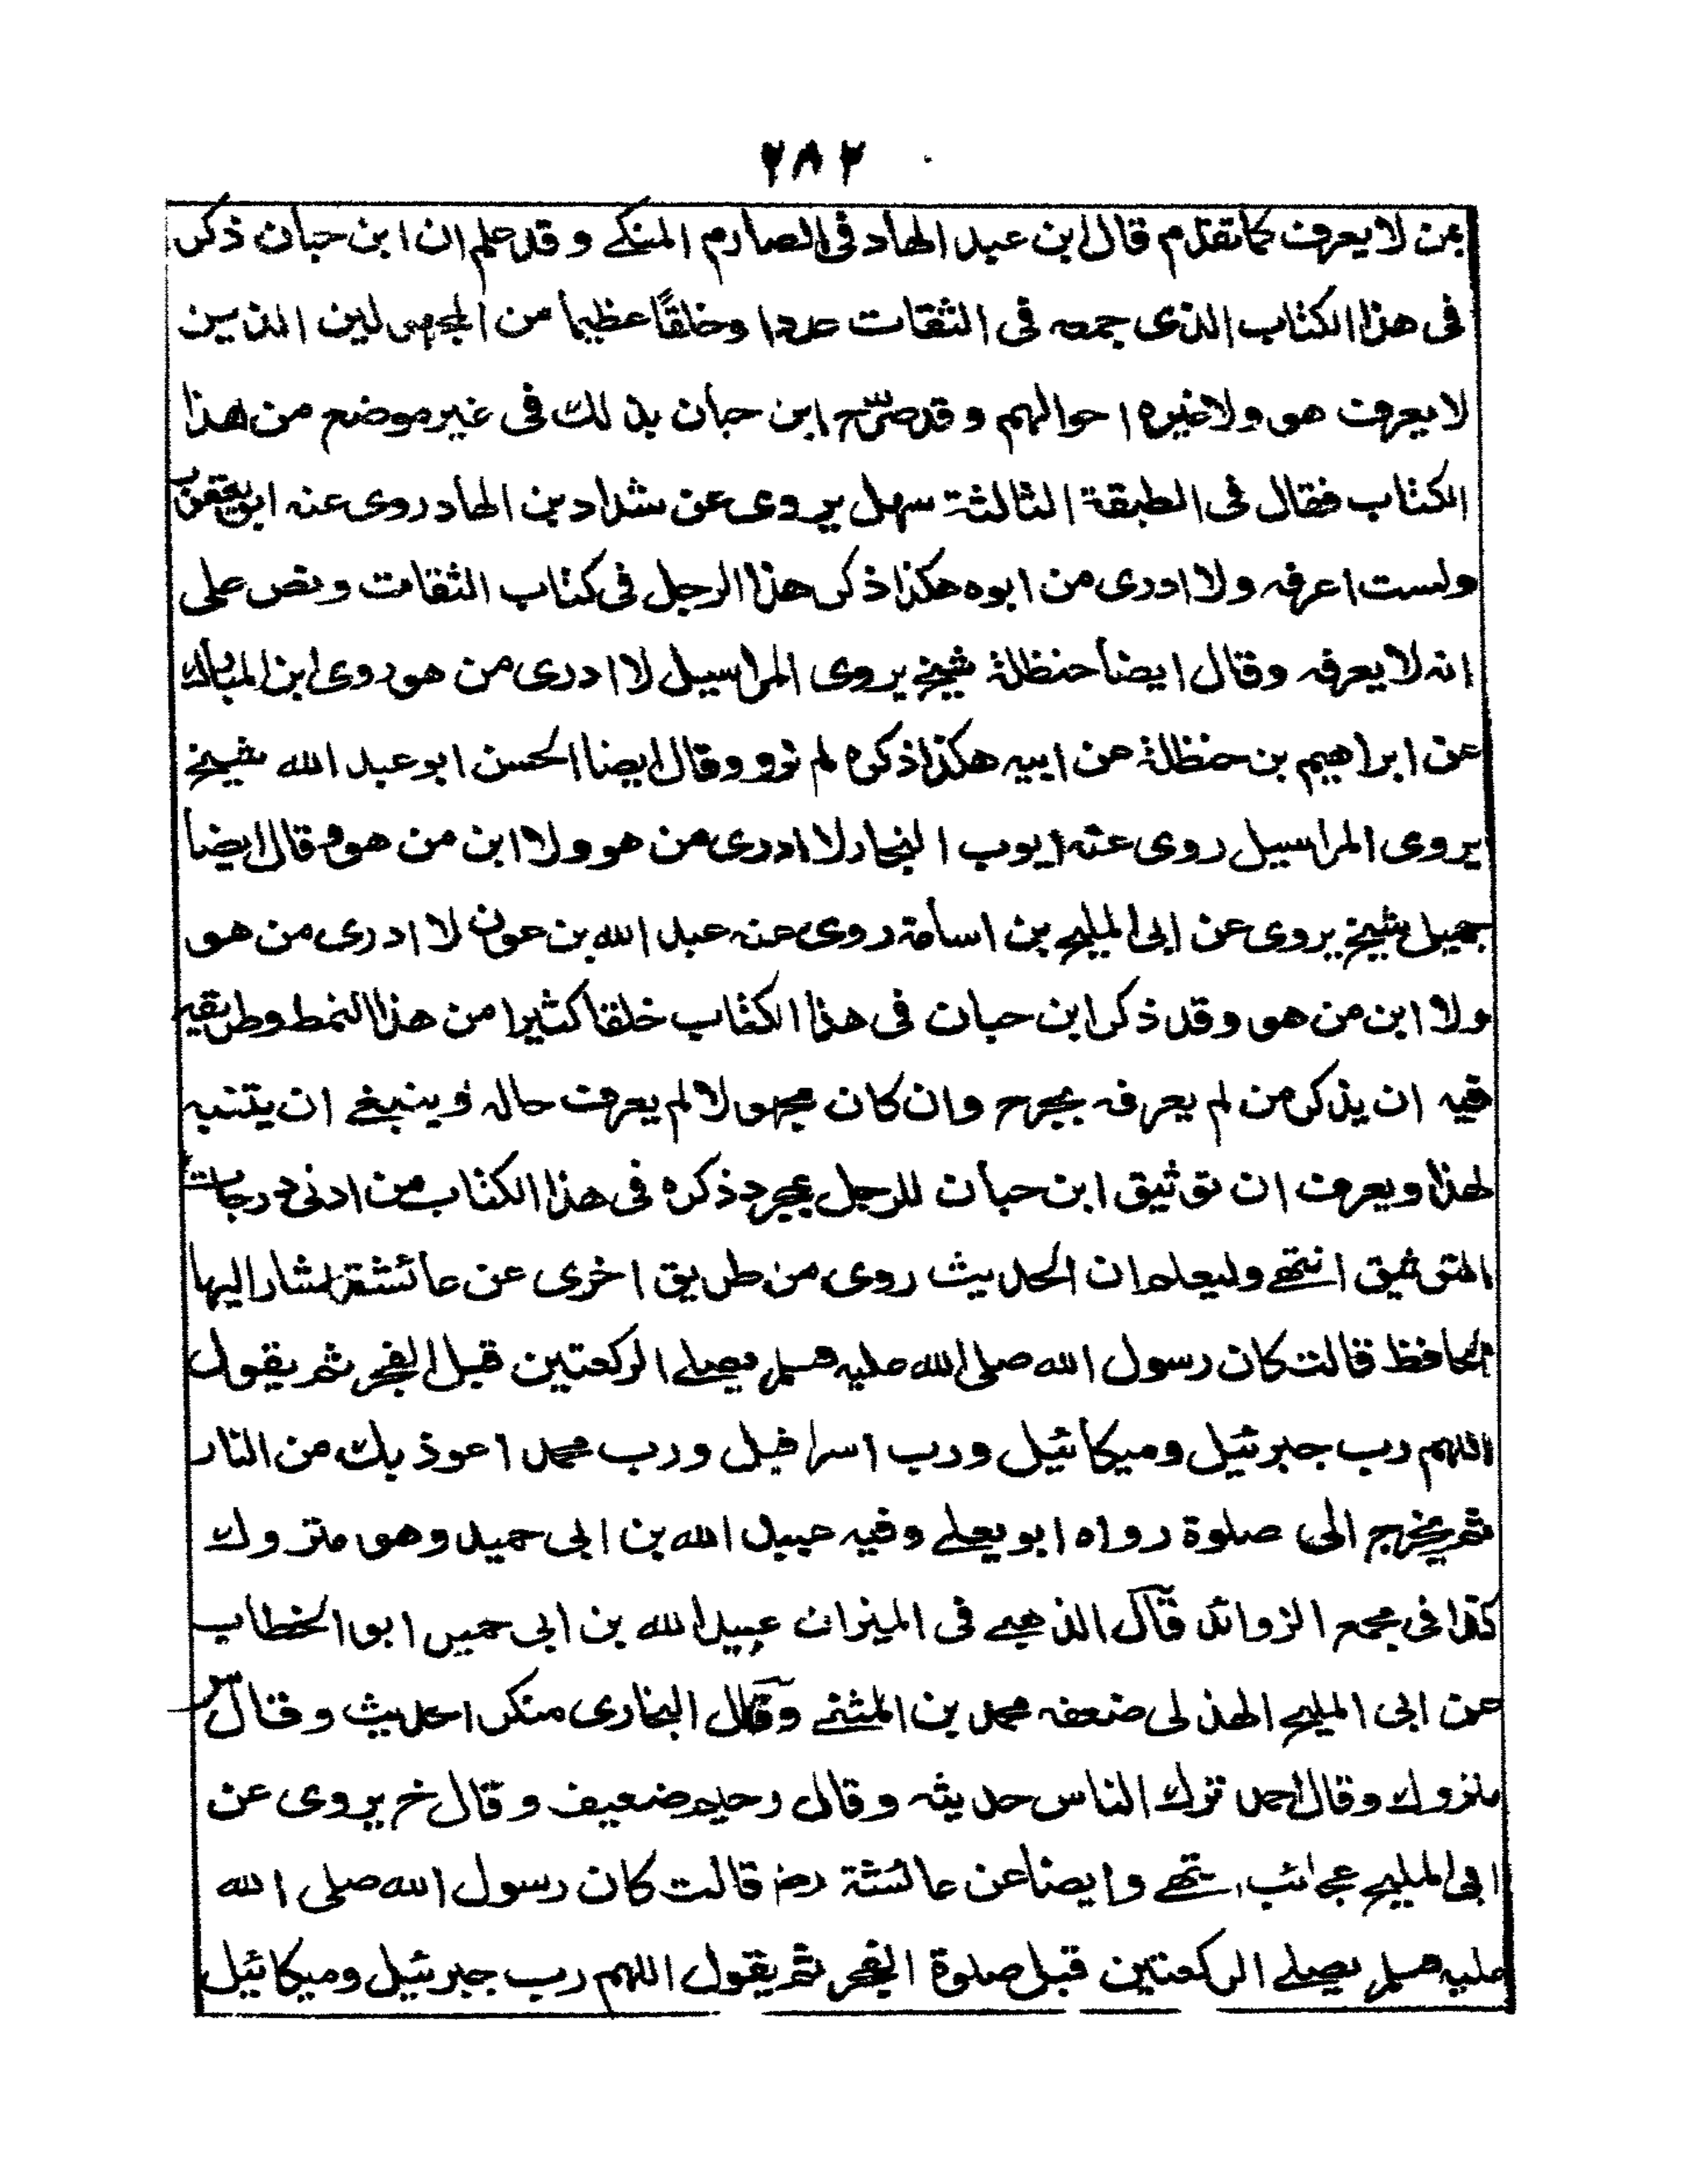 ٢٨٢
من لا يعرف كما تقدم قال ابن عبد الهاد فى الصارم المنكے وقد علم ان ابن حبان ذكر
فى هذا الكتاب الذى جمعه فى الثقات عددا وخلقًا عظيما من المجهولين الذين
لا يعرف هو ولا غيره احوالهم وقد صرّح ابن حبان بذلك فى غير موضع من هذا
الكتاب فقال فى الطبقة الثالثة سهل يروى عن شداد بن الهاد روى عنه ابو يعفور
ولست اعرفه ولا ادرى من ابوه هكذا ذكر هذا الرجل فى كتاب الثقات ونص على
انه لا يعرفه وقال ايضا حنظلة شيخ يروى المراسيل لا ادرى من هو روى ابن المبارك
عن ابراهيم بن حنظلة عن ابيه هكذا ذكره لم نزد وقال ايضا الحسن ابو عبد الله شيخ
يروى المراسيل روى عنه ايوب النجار لا ادرى من هو ولا ابن من هو وقال ايضا
جميل شيخ يروى عن ابى المليح بن اسامة روى عنه عبد الله بن عون لا ادرى من هو
ولا ابن من هو وقد ذكر ابن حبان فى هذا الكتاب خلقا كثيرا من هذا النمط وطريقته
فيه ان يذكر من لم يعرفه بجرح وان كان مجهولا لم يعرف حاله وينبغے ان يتنبه
لهذا ويعرف ان توثيق ابن حبان للرجل بمجرد ذكره فى هذا الكتاب من ادنى درجات
التوثيق انتهے وليعلم ان الحديث روى من طريق اخرى عن عائشة اشار اليها
الحافظ قالت كان رسول الله صلى الله عليه وسلم يصلے الركعتين قبل الفجر ثم يقول
اللهم رب جبرئيل وميكائيل ورب اسرافيل ورب محمد اعوذ بك من النار
ثم يخرج الى صلوة رواه ابو يعلے وفيه عبيد الله بن ابى حميد وهو متروك
كذا فى مجمع الزوائد قال الذهبے فى الميزان عبيد الله بن ابى حميد ابو الخطاب
عن ابى المليح الهذلى ضعفه محمد بن المثنے وقال البخارى منكر احديث وقال س
متروك وقال احمد ترك الناس حديثه وقال دحيم ضعيف وقال خ يروى عن
ابى المليح عجائب انتهے وايضا عن عائشة رضـ قالت كان رسول الله صلى الله
عليه وسلم يصلے الركعتين قبل صلوة الفجر ثم يقول اللهم رب جبرئيل وميكائيل